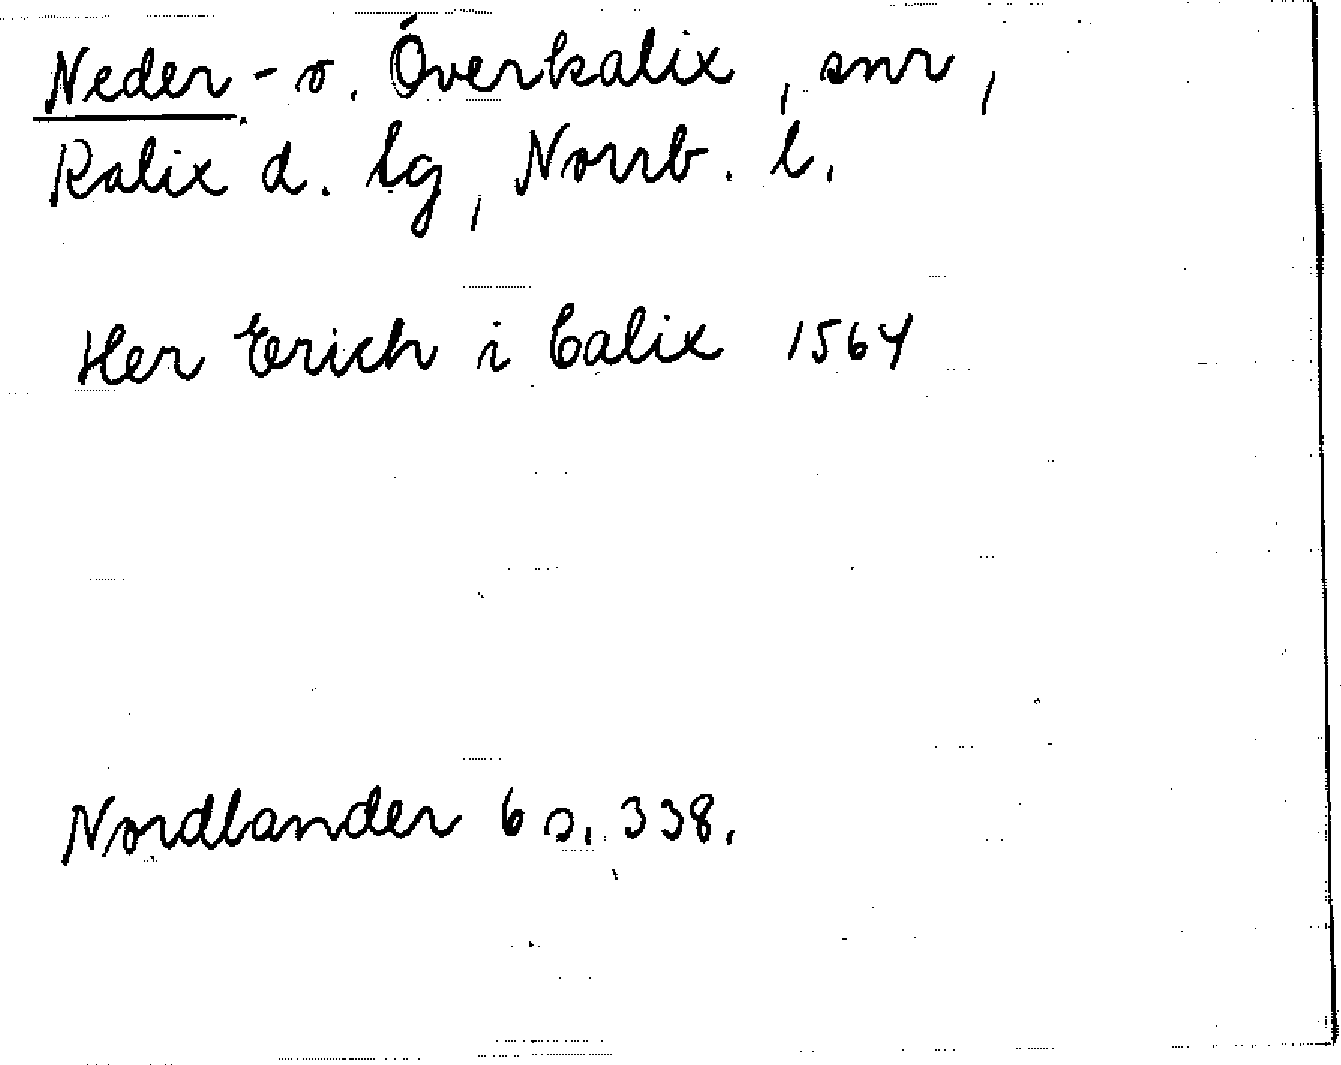 Neder- o. Överkalix, snr,
Kalix d. lg, Norrb. l.
Her Erich i Calix 1564
Nordlander 6 s. 338.